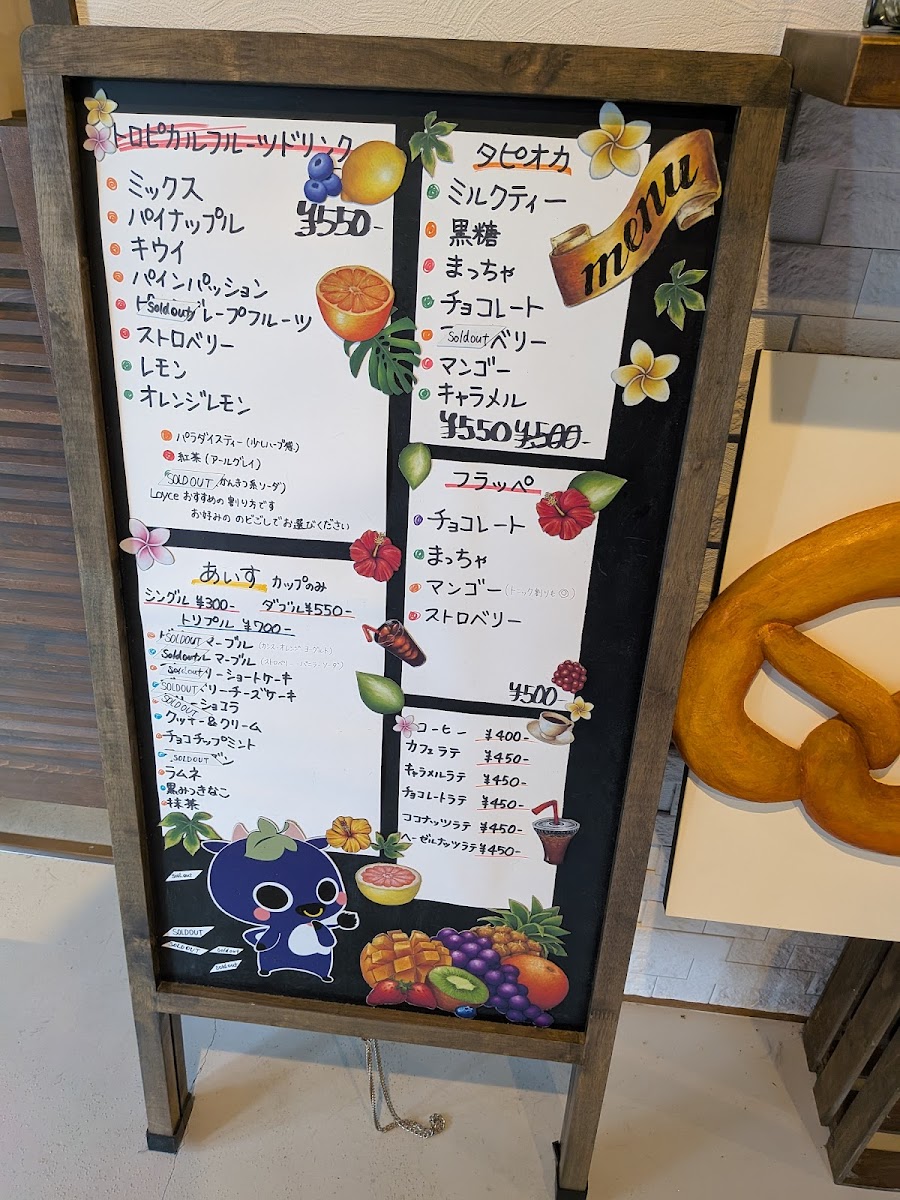 トロピカルフルーツドリンク
¥550-
ミックス
パイナップル
キウイ
パインパッション
Soldout レープフルーツ
ストロベリー
レモン
オレンジレモン
パラダイスティー(少しハーブ感)
紅茶(アールグレイ)
SOLDOUT かんきつ系ソーダ)
Layce おすすめの割り方です
お好みの のどごしでお選びください
あいす カップのみ
シングル ¥300- ダブル ¥550-
トリプル ¥700-
SOLDOUT マーブル
Soldout ル マーブル
Soldout リーショートケーキ
SOLDOUT ベリーチーズケーキ
SOLDOUT ーショコラ
クッキー&クリーム
チョコチップミント
SOLDOUT
ラムネ
黒みつきなこ
抹茶
Soldout
SOLDOUT
SOLDOUT
Soldout
Soldout
menu
タピオカ
ミルクティー
黒糖
まっちゃ
チョコレート
Soldout ベリー
マンゴー
キャラメル
¥550 ¥500-
フラッペ
チョコレート
まっちゃ
マンゴー(トニック割りも◎)
ストロベリー
¥500-
コーヒー ¥400-
カフェラテ ¥450-
キャラメルラテ ¥450-
チョコレートラテ ¥450-
ココナッツラテ ¥450-
ヘーゼルナッツラテ ¥450-